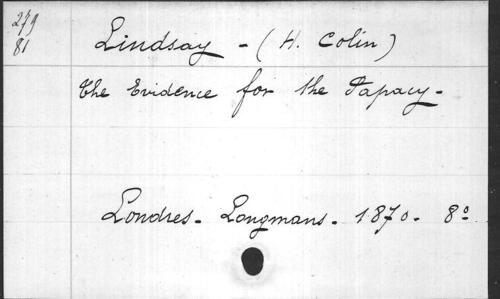 279
81
Lindsay - (H. Colin)
The Evidence for the Papacy -
Londres - Longmans - 1870 - 8º